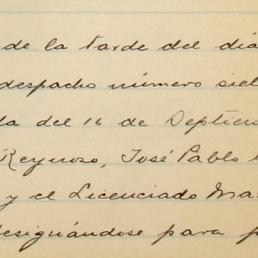 de la tarde del día
despacho número sie
da del 16 de Septiem
Reynoso, José Pablo
y el Licenciado Ma
designándose para p